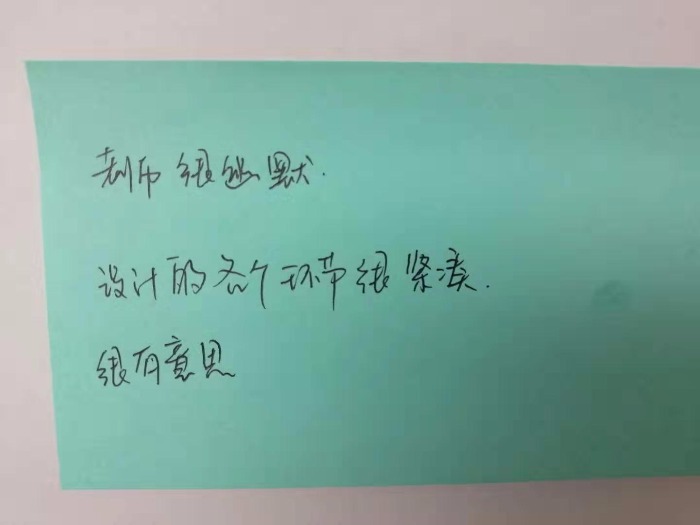 老师很幽默.
设计的各个环节很紧凑.
很有意思